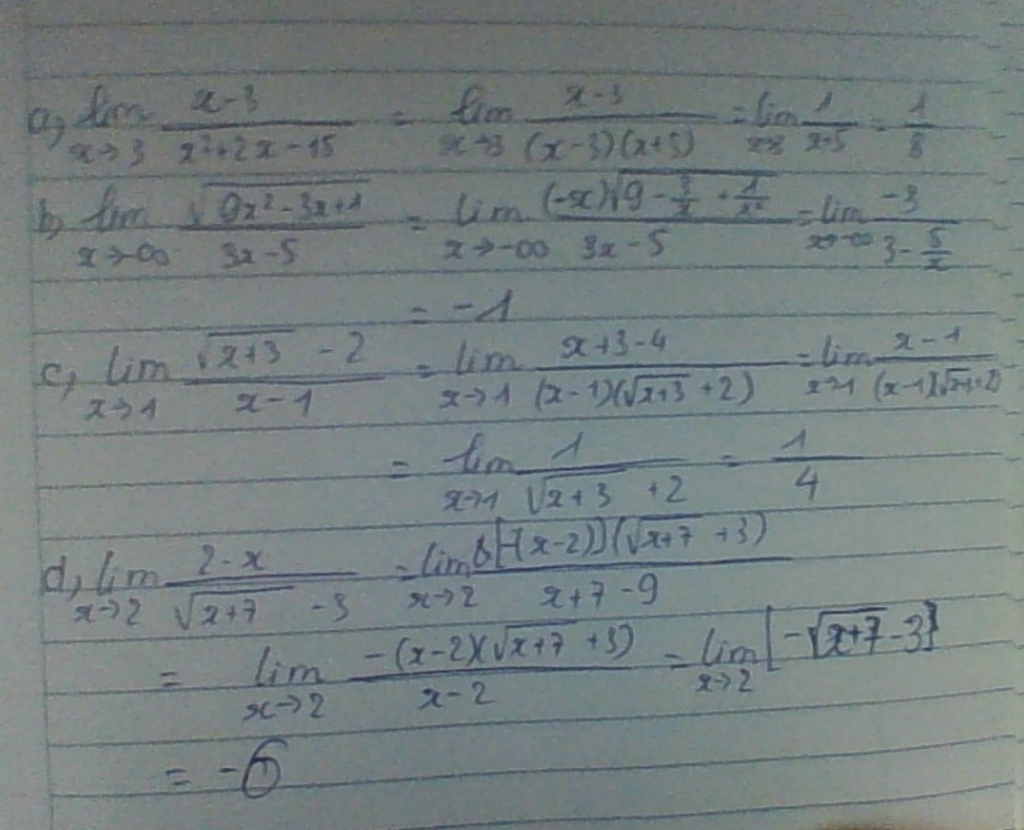 a, lim x→3 (x-3)/(x²+2x-15) = lim x→3 (x-3)/((x-3)(x+5)) = lim x→3 1/(x+5) = 1/8
b, lim x→-∞ √(9x²-3x+1)/(3x-5) = lim x→-∞ (-x)√(9-3/x+1/x²)/(3x-5) = lim x→-∞ -3/(3-5/x)
= -1
c, lim x→1 (√(x+3) -2)/(x-1) = lim x→1 (x+3-4)/((x-1)(√(x+3) +2)) = lim x→1 (x-1)/((x-1)(√(x+3)+2))
= lim x→1 1/(√(x+3) +2) = 1/4
d, lim x→2 (2-x)/(√(x+7) -3) = lim x→2 [-(x-2)](√(x+7) +3)/(x+7-9)
= lim x→2 -(x-2)(√(x+7) +3)/(x-2) = lim x→2 [-√(x+7) -3]
= -6